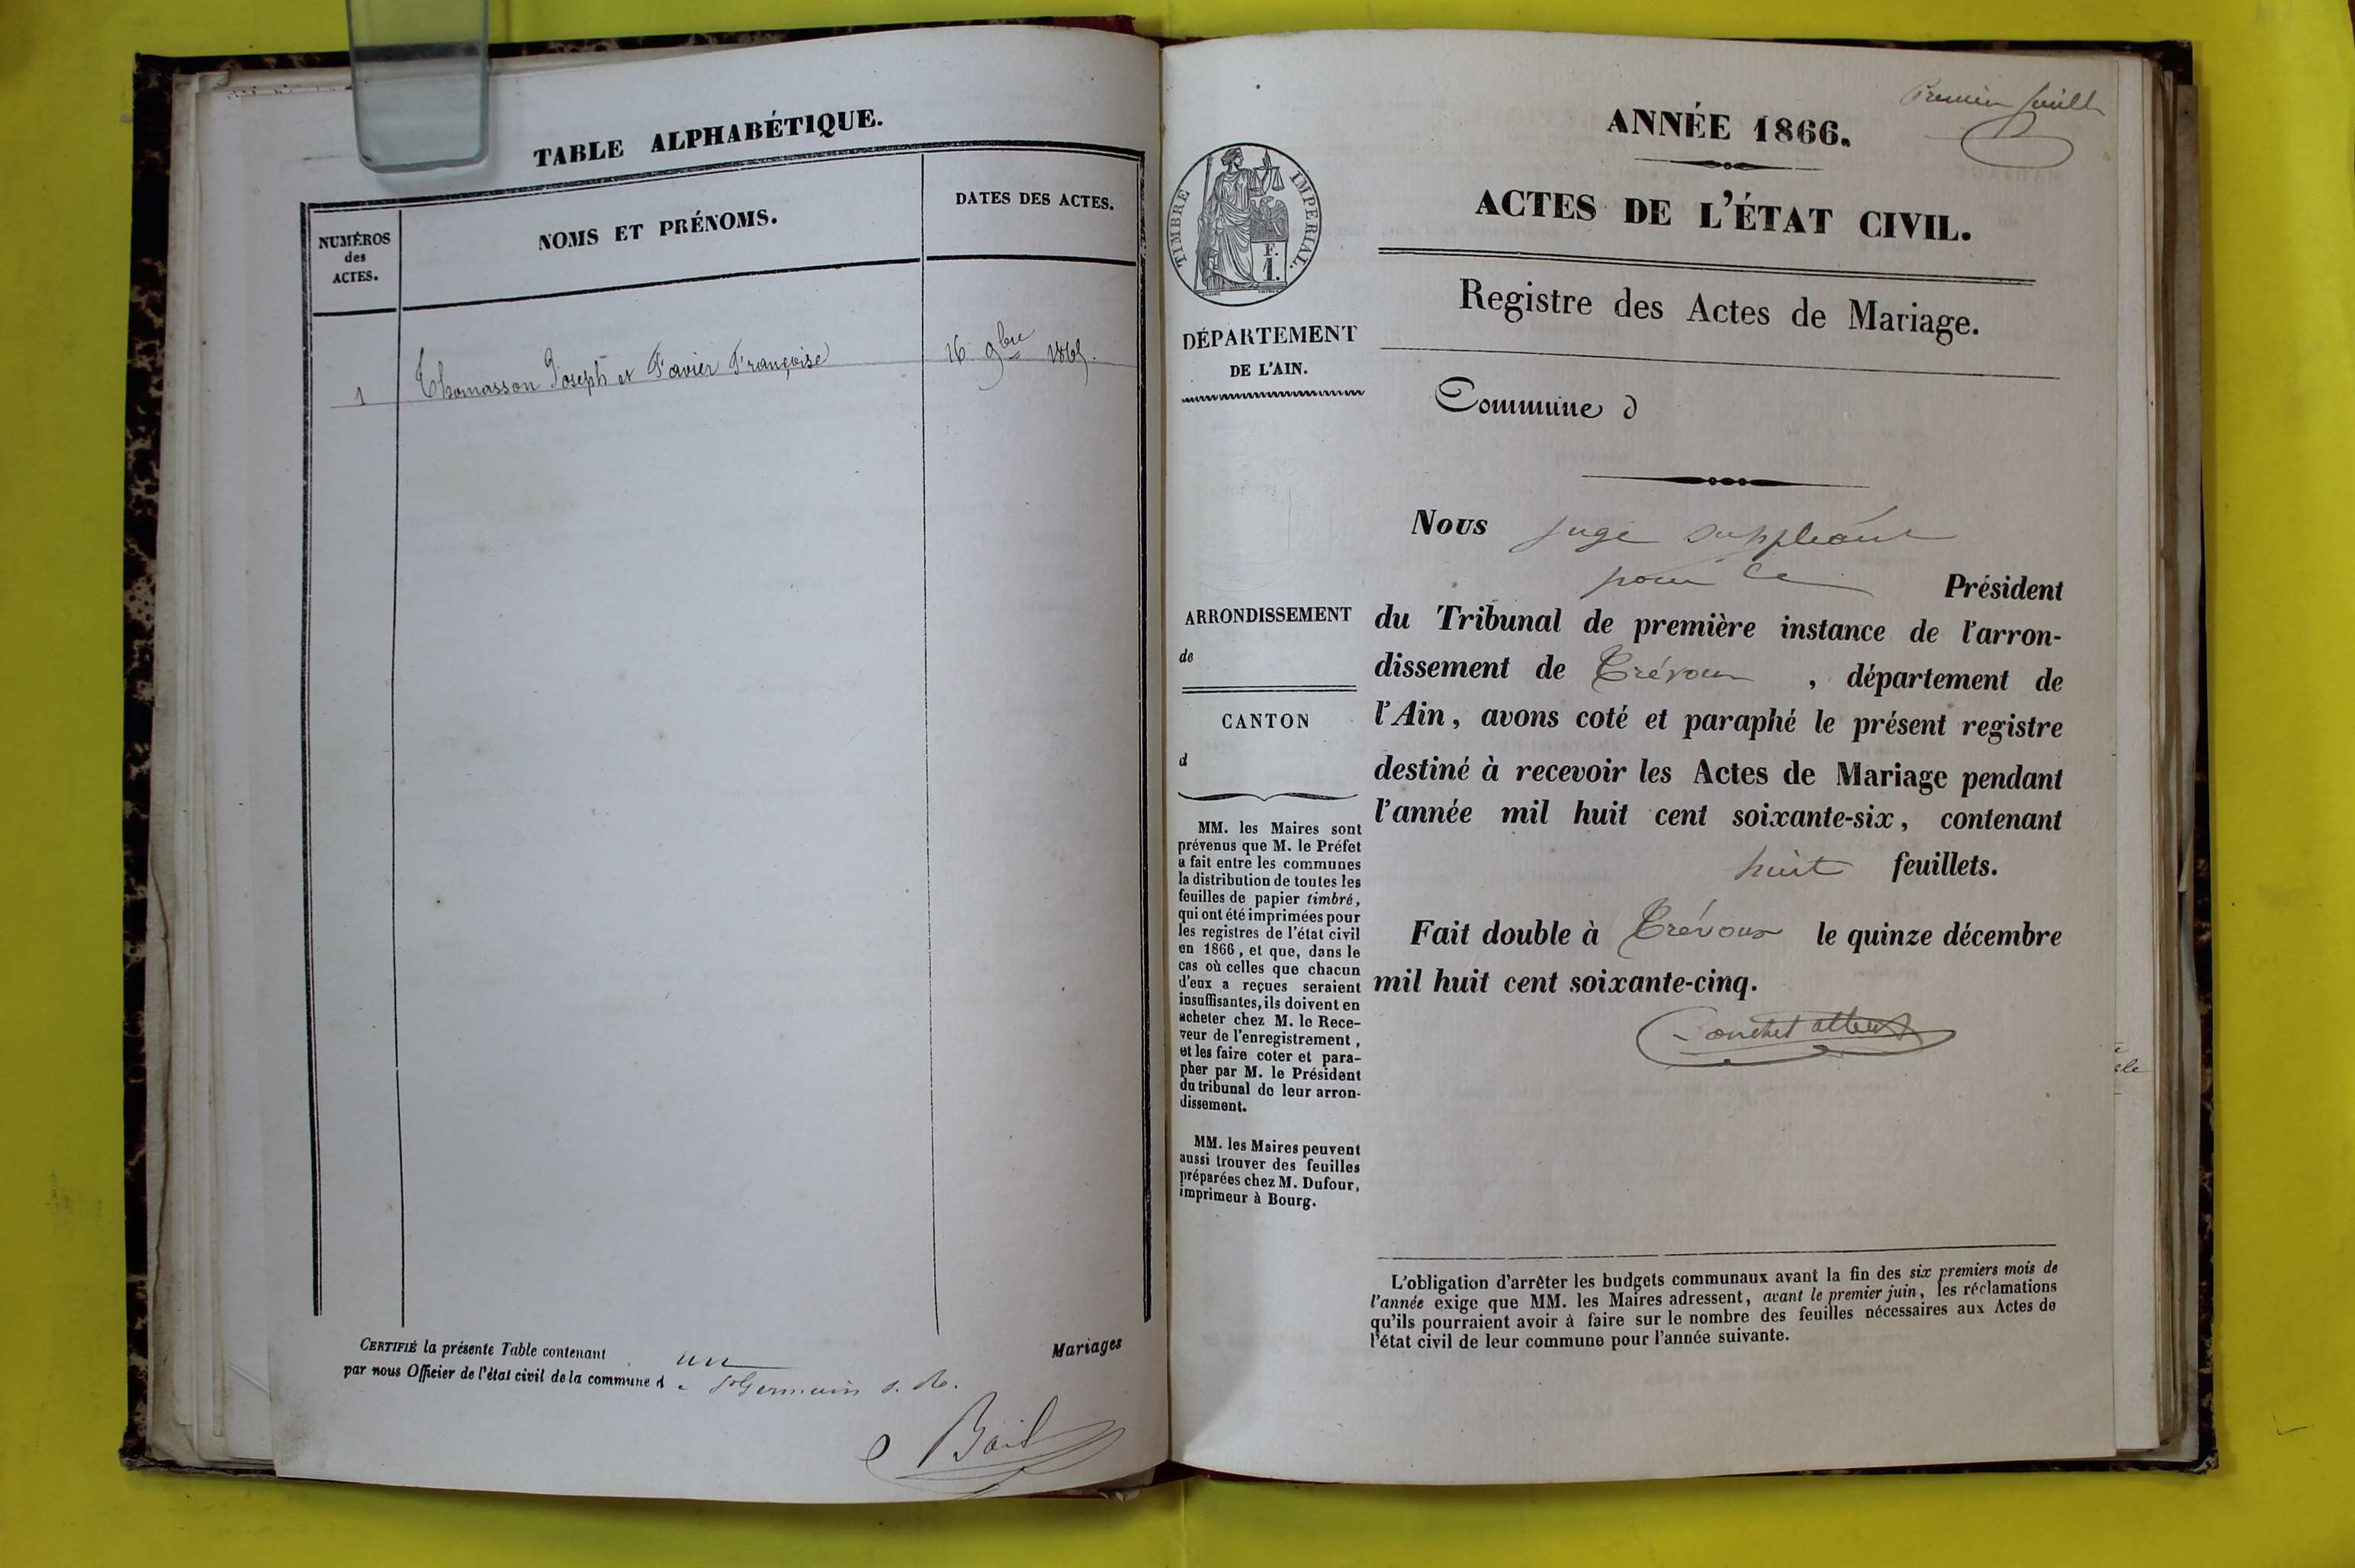 TABLE ALPHABÉTIQUE.
NUMÉROS
des
ACTES.
NOMS ET PRÉNOMS.
DATES DES ACTES.
1 Thomasson Joseph et Favier Françoise 16 9bre 1865.
CERTIFIÉ la présente Table contenant un Mariages
par nous Officier de l'état civil de la commune de St Germain s. R.
Bail
Premier feuillet
ANNÉE 1866.
ACTES DE L'ÉTAT CIVIL.
Registre des Actes de Mariage.
TIMBRE IMPERIAL.
F.
1.
DÉPARTEMENT
DE L'AIN.
Commune d
ARRONDISSEMENT
de
CANTON
d
MM. les Maires sont
prévenus que M. le Préfet
a fait entre les communes
la distribution de toutes les
feuilles de papier timbré,
qui ont été imprimées pour
les registres de l'état civil
en 1866, et que, dans le
cas où celles que chacun
d'eux a reçues seraient
insuffisantes, ils doivent en
acheter chez M. le Rece-
veur de l'enregistrement,
et les faire coter et para-
pher par M. le Président
du tribunal de leur arron-
dissement.
MM. les Maires peuvent
aussi trouver des feuilles
préparées chez M. Dufour,
imprimeur à Bourg.
Nous juge suppléant
pour le Président
du Tribunal de première instance de l'arron-
dissement de Trévoux, département de
l'Ain, avons coté et paraphé le présent registre
destiné à recevoir les Actes de Mariage pendant
l'année mil huit cent soixante-six, contenant
huit feuillets.
Fait double à Trévoux le quinze décembre
mil huit cent soixante-cinq.
L'obligation d'arrêter les budgets communaux avant la fin des six premiers mois de
l'année exige que MM. les Maires adressent, avant le premier juin, les réclamations
qu'ils pourraient avoir à faire sur le nombre des feuilles nécessaires aux Actes de
l'état civil de leur commune pour l'année suivante.